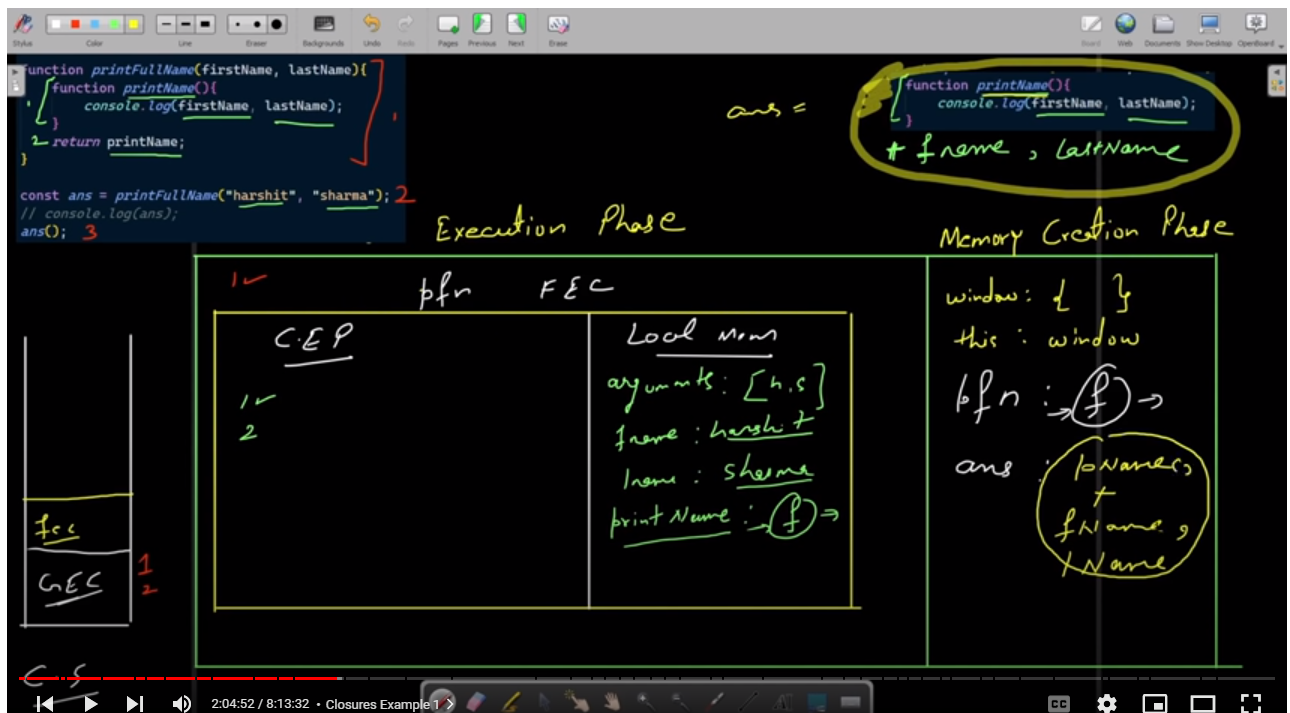 Stylus Color Line Eraser Backgrounds Undo Redo Pages Previous Next Erase Board Web Documents Show Desktop OpenBoard
function printFullName(firstName, lastName){
function printName(){
console.log(firstName, lastName);
}
2 return printName;
}
const ans = printFullName("harshit", "sharma"); 2
// console.log(ans);
ans(); 3
ans =
function printName(){
console.log(firstName, lastName);
}
+ fname, lastName
Execution Phase
Memory Creation Phase
1 ✓
pfn FEC
C.E.P
1 ✓
2
Local Mem
arguments: [h,s]
fname : harshit
lname : sharma
printName : → f →
window: { }
this : window
pfn : → f →
ans : pName(),
+
fName,
lName
fec
GEC
1
2
C.S
2:04:52 / 8:13:32 • Closures Example 1
CC